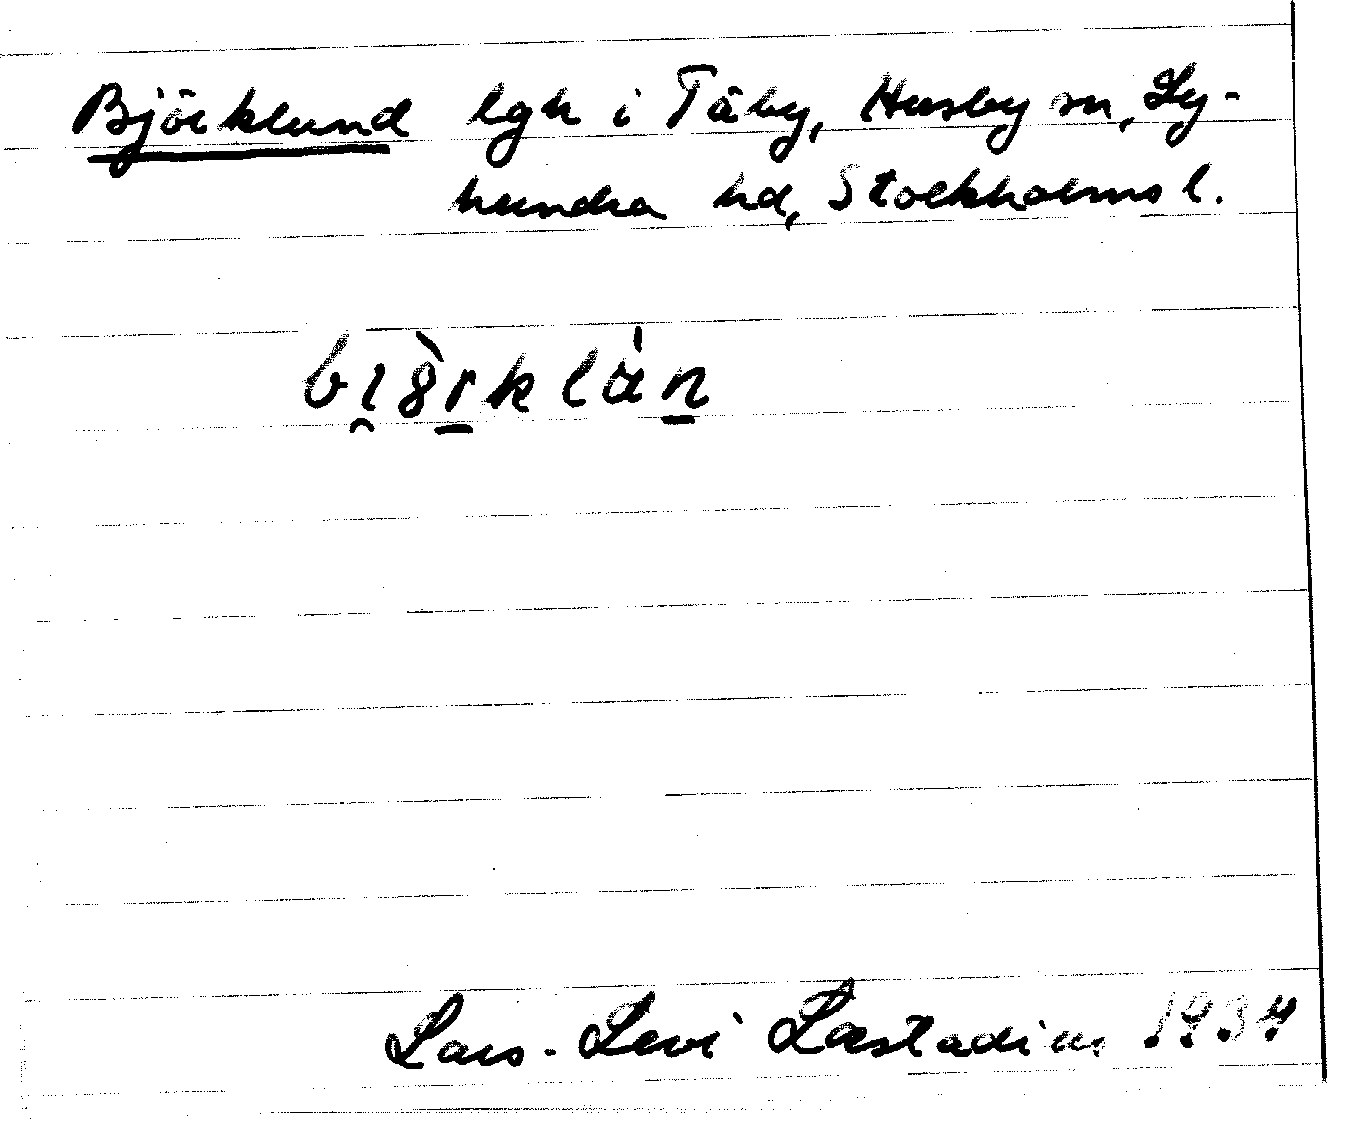 Björklund lgh i Täby, Husby sn, Ly-
hundra hd, Stockholms l.
Lars-Levi Læstadius 1934